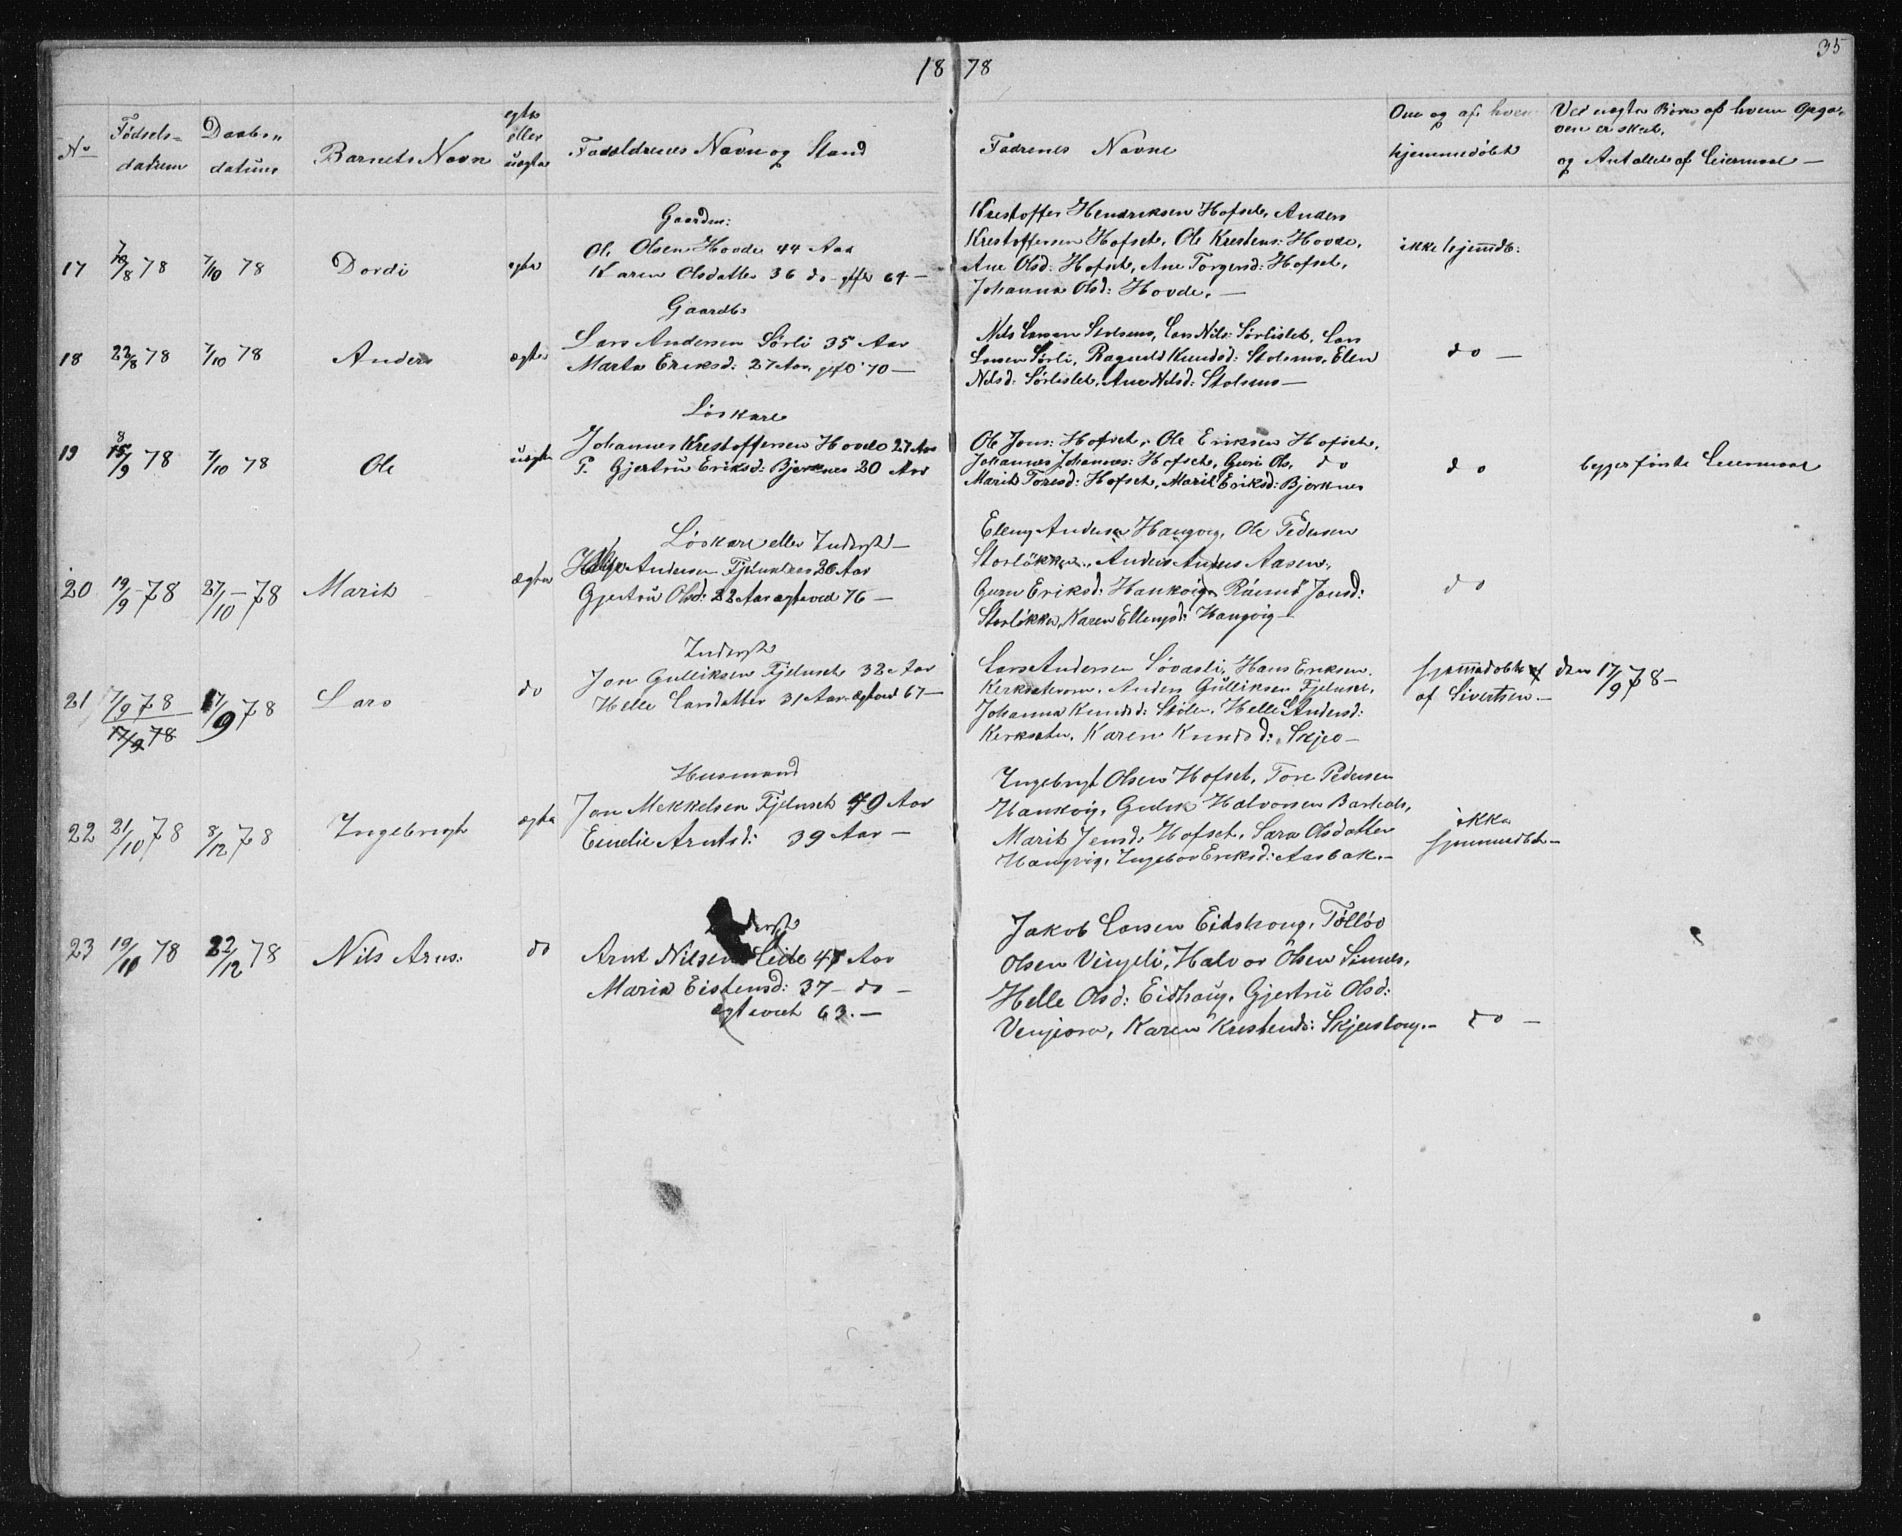 1878
35
No
Fødsels-
datum
Daabs-
datum
Barnets Navn
egte
eller
uegte
Foreldrenes Navn og Stand
Fadrenes Navne
Om og af hvem
hjemmedøbt
Ved uegte Børn af hvem Opga-
ven er skeet,
og Antallet af Leiermaal —
17 8 78 7/10 78 Dordi egte
Gaardm:
Ole Olsen Hovde 44 Aar
Karen Olsdatter 36 do gift 64 —
Krestoffer Hendriksen Hofset, Anders
Krestoffersen Hofset, Ole Krestens: Hovde,
Ane Olsd: Hofset, Ane Torgersd: Hofset,
Johanna Olsd: Hovde. —
ikke hjemdb:
18 22/8 78 7/10 78 Anders egte
Gaardb:
Lars Andersen Sørli 35 Aar
Marta Eriksd: 27 Aar, gift 70 —
Nils Larsen Stolsmo, Lars Nils: Sørlislet, Lars
Larsen Sørli, Ragnild Knudsd: Stolsmo, Elen
Nilsd: Sørlislet, Ane Nilsd: Stolsmo —
do —
19 15/9 78 7/10 78 Ole uegte
Løskare
Johannes Krestoffersen Hovde 27 Aar
P. Gjertru Eriksd: Bjerknes 20 Aar
Ole Jons: Hofset, Ole Eriksen Hofset,
Johannes Johannes: Hofset, Guri Ols. do
Marit Toresd: Hofset, Marit Eriksd: Bjerknes
do
begges første Leiermaal
20 19/9 78 27/10 78 Marit ægte
Løskare eller Inderst —
Andersen Fjelnset 26 Aar
Gjertru Olsd: 22 Aar egteved 76 —
Elleng Andersen Haugvig, Ole Pedersen
Storløkken, Anders Anders Aasen,
Guru Eriksd: Hankvig, Jonsd:
Storløkken, Karen Ellengsd: Haugvig —
do
21 7/9 78 17/9 78 Lars do
17/9 78
Inderst
Jon Gulliksen Fjelnset 32 Aar
Helle Larsdatter 31 Aar egteved 67 —
Lars Andersen Løvasli, Hans Eriksen
Anders Gulliksen Fjelnset,
Johanna Knudsd: Stølen, Helle Andersd:
Kerksæter, Karen Knudsd: Skjeo —
hjemmedøbt den 17/9 78 —
af Sivertsen —
22 21/10 78 8/12 78 Ingebrigt ægte
Husmand
Jon Mekkelsen Fjelnset 40 Aar
Emelie Arntsd: 39 Aar —
Ingebrigt Olsen Hofset, Tore Pedersen
Hankvig, Halvorsen
Marit Jensd: Hofset, Sara Olsdatter
Haugvig, Ingebor Eriksd: Aasbak. —
ikke
hjemmedbt —
23 19/10 78 22/12 78 Nils Arns: do
Inderst
Arnt Nilsen Lide 47 Aar
Maria Eistensd: 37 — do —
egteviet 63. —
Jakob Larsen Eidshoug, Tølløv
Olsen Vinjeli, Halvor Olsen Sinnes,
Helle Olsd: Eidhaug, Gjertru Olsd:
Vinjeora, Karen Krestensd: Skjerstoug. —
do —